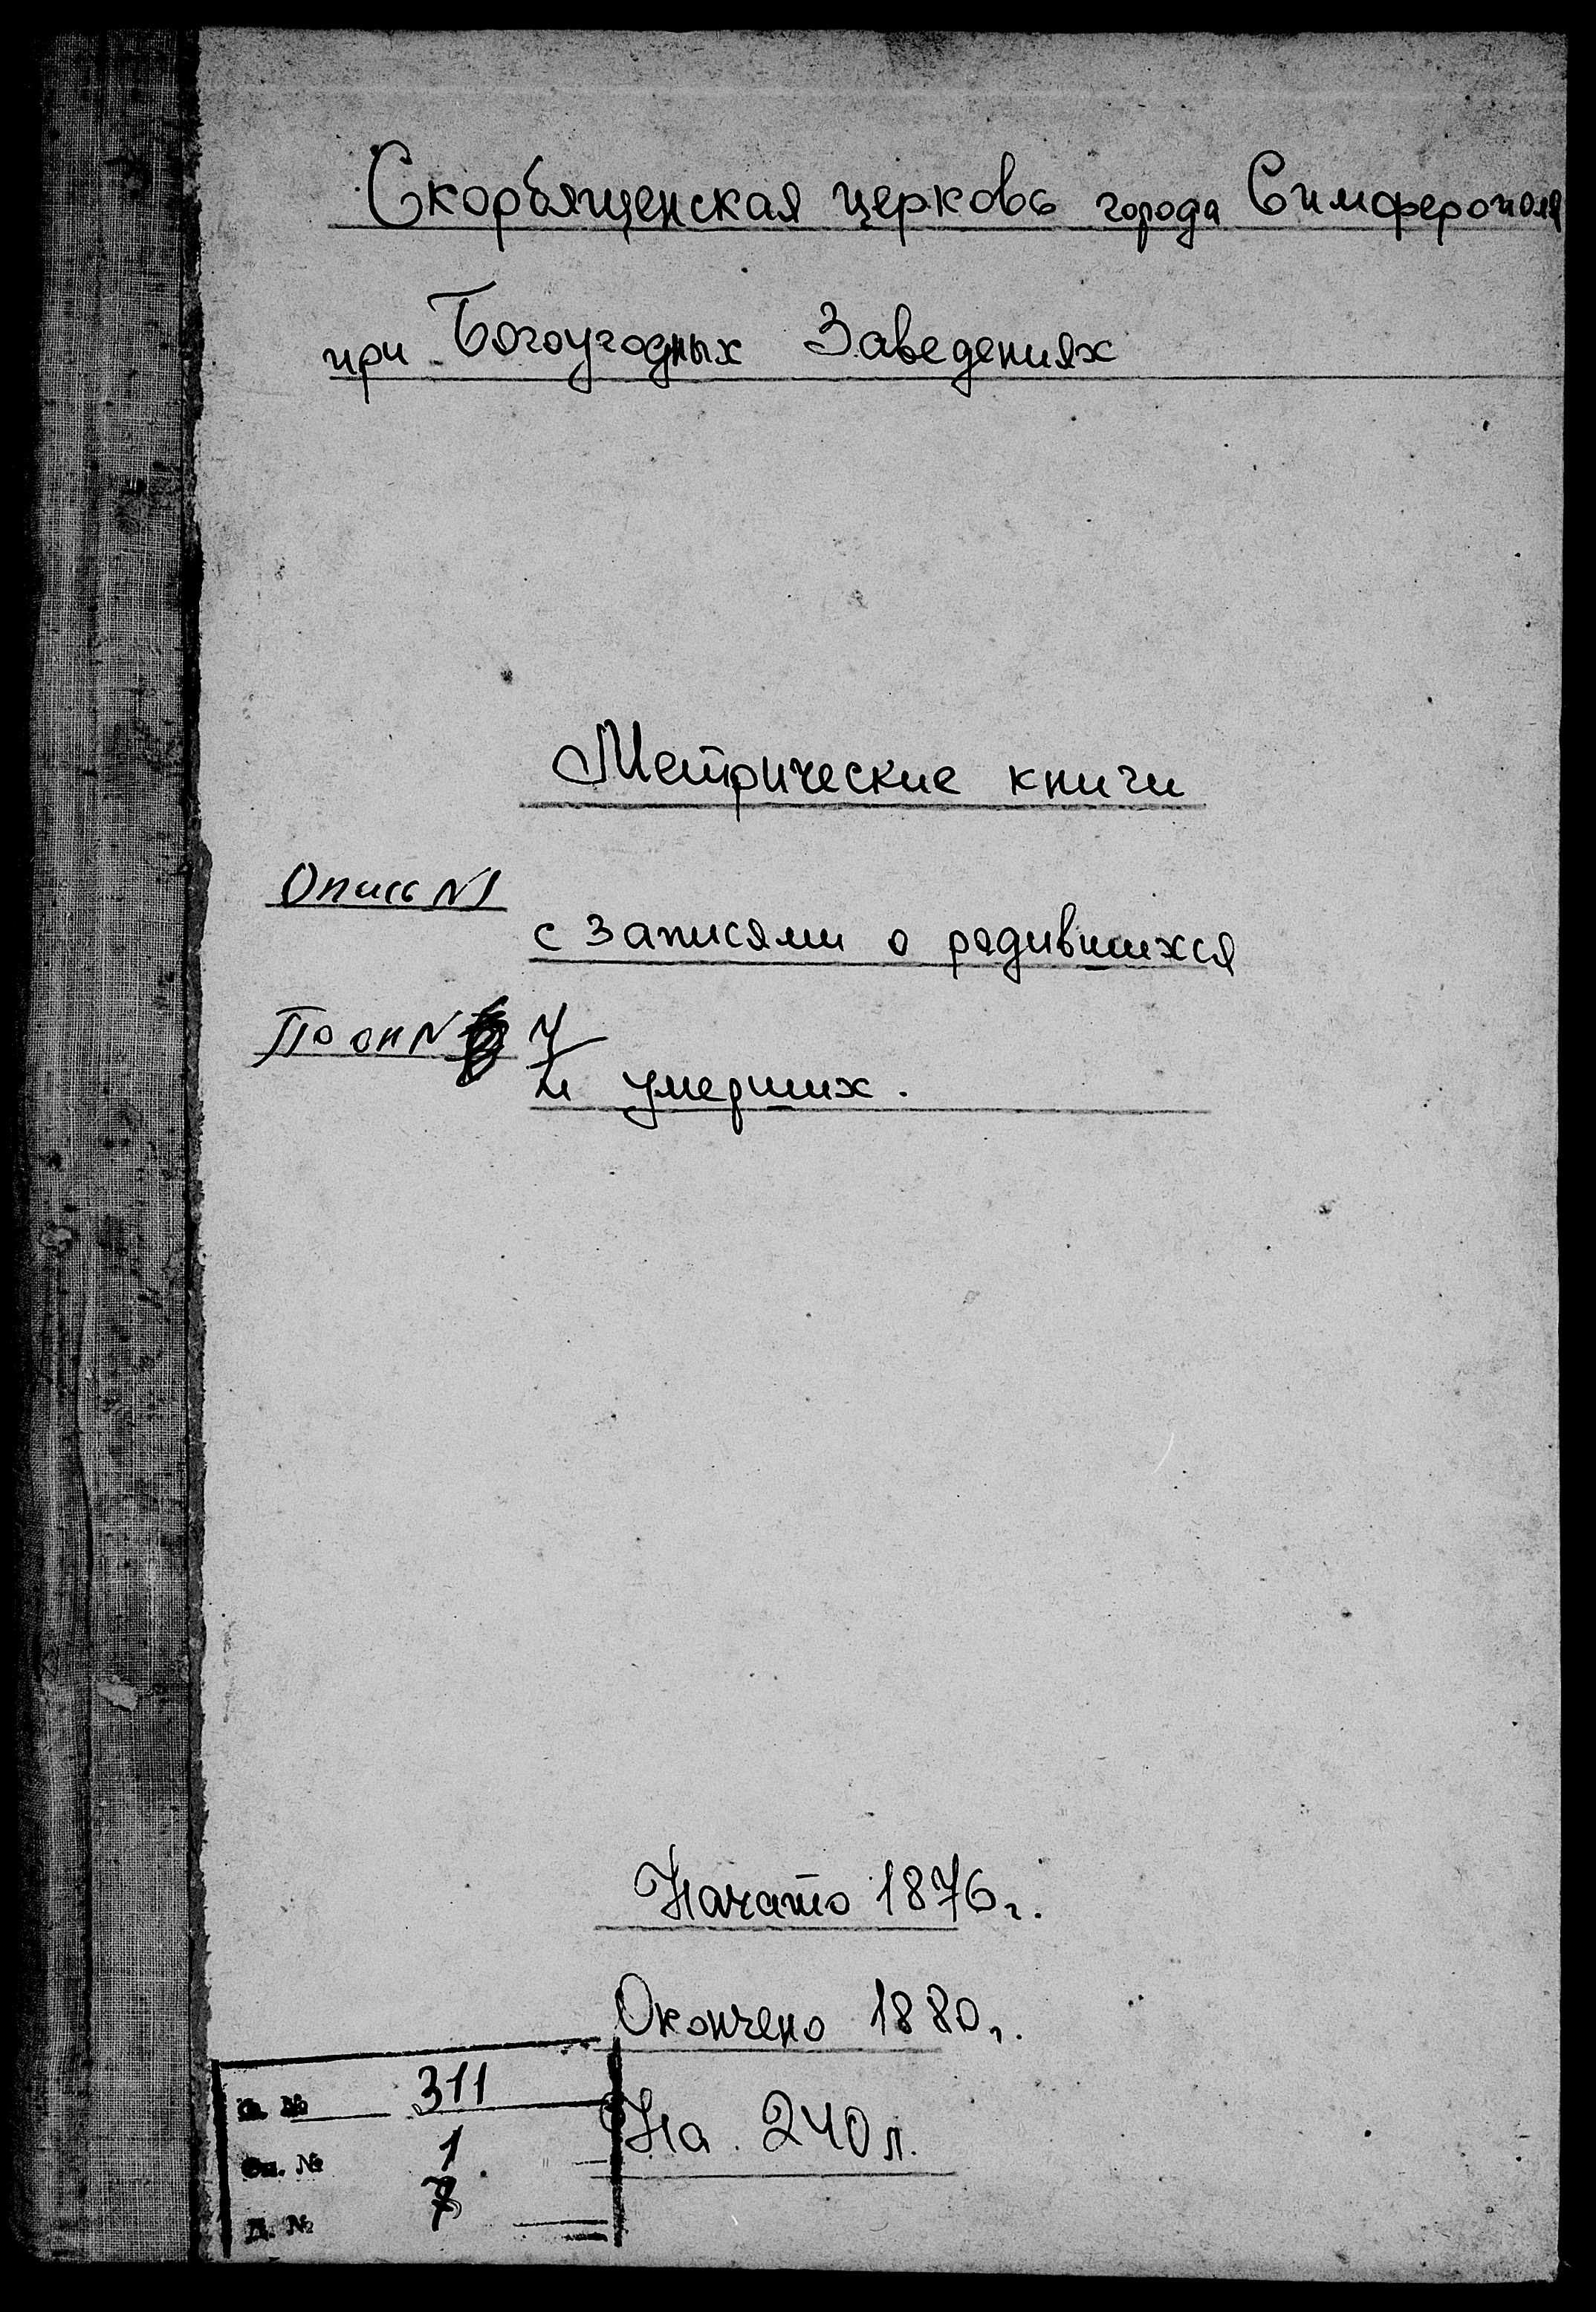 Скорбященская церковь города Симферополя
при Богоугодных Заведениях
Метрические книги
Опись №1
с записями о родившихся
По оп № 7
и умерших.
Начато 1876 г.
Окончено 1880 г.
На 240 л.
Ф. № 311
Оп. № 1
Д. № 7